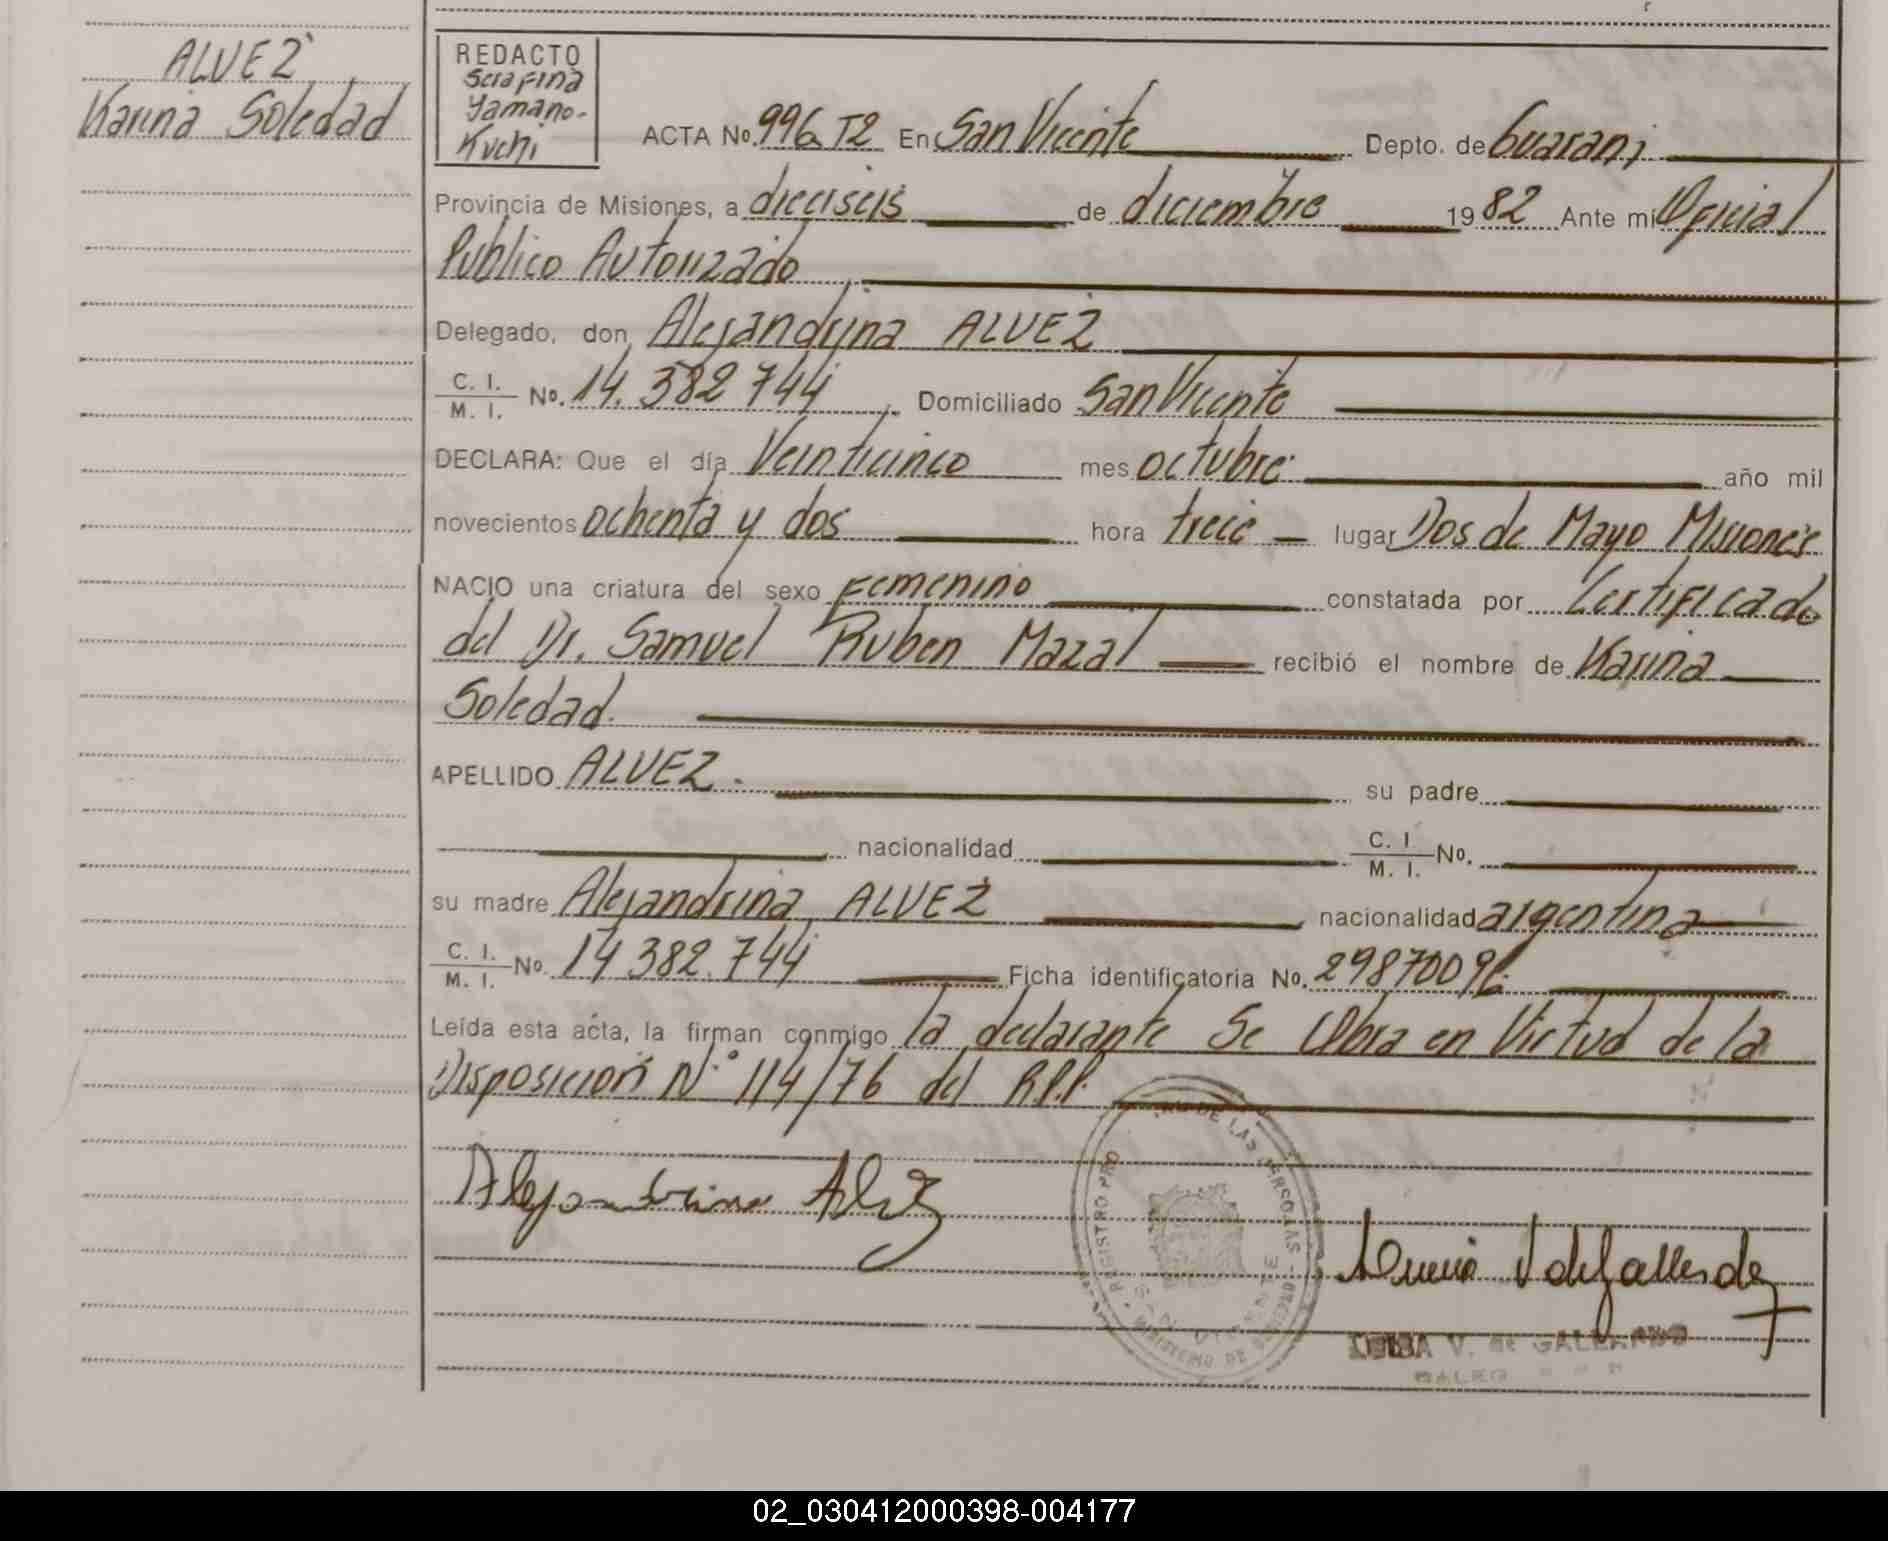 ALVEZ
Karina Soledad
REDACTO
Serafina
Yamano-
Kuchi
ACTA No. 996 T2 En San Vicente Depto. de Guarani
Provincia de Misiones, a dieciseis de diciembre 1982 Ante mi Oficial
Publico Autorizado
Delegado, don Alejandrina ALVEZ
C. I. / M. I. No. 14.382 744 Domiciliado San Vicente
DECLARA: Que el día Veinticinco mes octubre año mil
novecientos ochenta y dos hora trece lugar Dos de Mayo Misiones
NACIO una criatura del sexo Femenino constatada por Certificado
del Dr. Samuel Ruben Mazal recibió el nombre de Karina
Soledad.
APELLIDO ALVEZ. su padre
nacionalidad C. I. / M. I. No.
su madre Alejandrina ALVEZ nacionalidad argentina
C. I. / M. I. No. 14 382.744 Ficha identificatoria No. 29870096
Leída esta acta, la firman conmigo la declarante Se Obra en Virtud de la
Disposicion N° 114/76 del R.P.P.
Alejandrina Alvez
REGISTRO PRO DE LAS PERSONAS - MINISTERIO DE
V. de GALLARDO
02_030412000398-004177